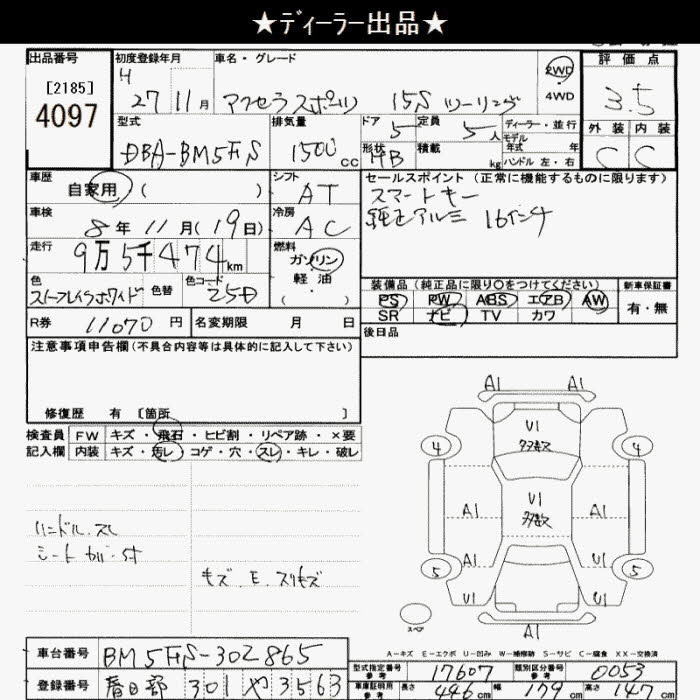 ★ディーラー出品★
出品番号 初度登録年月 車名・グレード 2WD 評価点
[2185] H 27 11月 アクセラスポーツ 15S ツーリング 4WD 3.5
4097 型式 排気量 ドア 定員 ディーラー・並行 外装 内装
DBA-BM5FS 1500cc 5 5人 モデル年式 年 C C
形状 HB 積載 kg ハンドル 左・右
車歴 シフト セールスポイント (正常に機能するものに限ります)
自家用 ( ) AT スマートキー
車検 冷房 純正アルミ 16インチ
8年 11月(19日) AC
走行 燃料
9万5千474km ガソリン
色 色替 色コード 軽油 装備品(純正品に限り○をつけてください) 新車保証書
スノーフレイクホワイト 25D ( ・ ) PS PW ABS エアB AW 有・無
R券 11070円 名変期限 月 日 SR ナビ TV カワ
注意事項申告欄(不具合内容等は具体的に記入して下さい) 後日品
修復歴 有 [箇所 ]
検査員 FW キズ・飛石・ヒビ割・リペア跡・×要
記入欄 内装 キズ・汚レ・コゲ・穴・スレ・キレ・破レ
A1 A1
4 U1 4
U1
A1 A1
A1 U1
5 5
U1 U1
A1
ハンドル、スレ
キズ、E、スリキズ
スペア
A-キズ E-エクボ U-凹み W-補修跡 S-サビ C-腐食 XX-交換済
車台番号 BM5FS-302865
型式指定番号 参考 17607 類別区分番号 参考 0053
登録番号 春日部 301 や 3563
車庫証明用 参考 長さ 446cm 幅 179cm 高さ 147cm